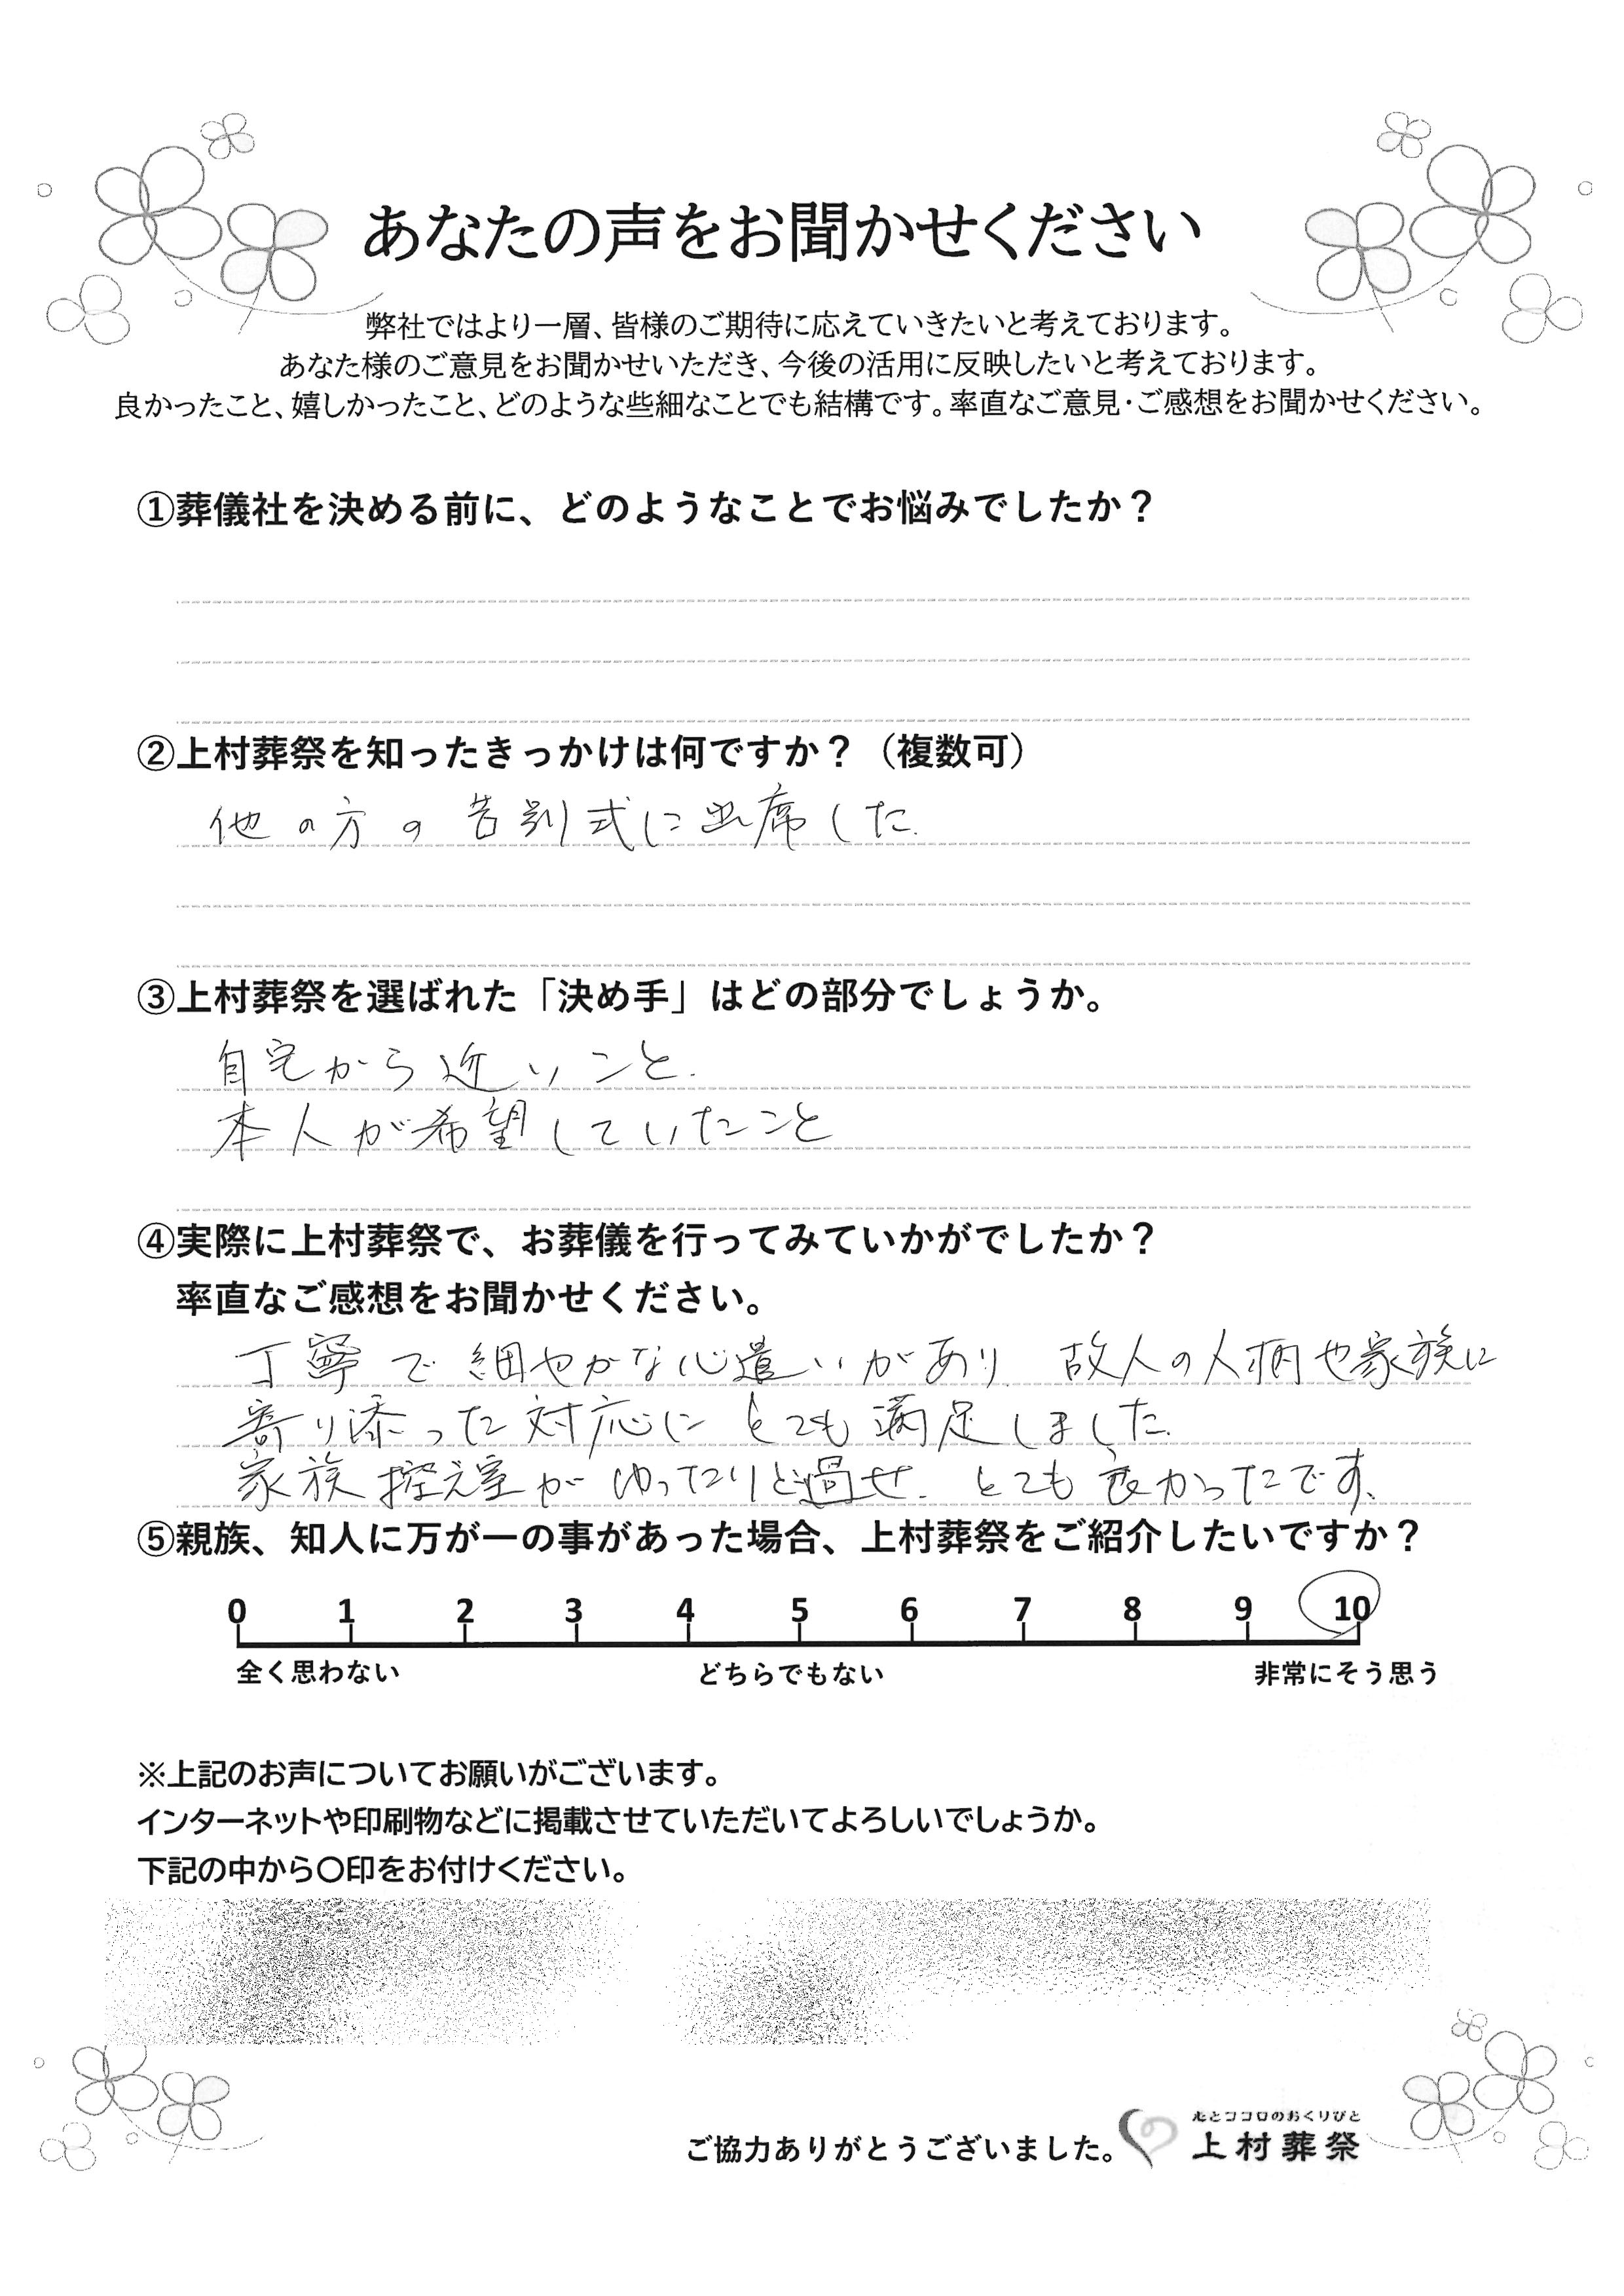 あなたの声をお聞かせください
弊社ではより一層、皆様のご期待に応えていきたいと考えております。
あなた様のご意見をお聞かせいただき、今後の活用に反映したいと考えております。
良かったこと、嬉しかったこと、どのような些細なことでも結構です。率直なご意見・ご感想をお聞かせください。
①葬儀社を決める前に、どのようなことでお悩みでしたか？
②上村葬祭を知ったきっかけは何ですか？（複数可）
他の方の告別式に出席した.
③上村葬祭を選ばれた「決め手」はどの部分でしょうか。
自宅から近いこと.
本人が希望していたこと
④実際に上村葬祭で、お葬儀を行ってみていかがでしたか？
率直なご感想をお聞かせください。
丁寧で細やかな心遣いがあり、故人の人柄や家族に
寄り添った対応にとても満足しました.
家族控え室がゆったりと過せ、とても良かったです、
⑤親族、知人に万が一の事があった場合、上村葬祭をご紹介したいですか？
0 1 2 3 4 5 6 7 8 9 10
全く思わない どちらでもない 非常にそう思う
※上記のお声についてお願いがございます。
インターネットや印刷物などに掲載させていただいてよろしいでしょうか。
下記の中から〇印をお付けください。
心とココロのおくりびと
ご協力ありがとうございました。 上村葬祭